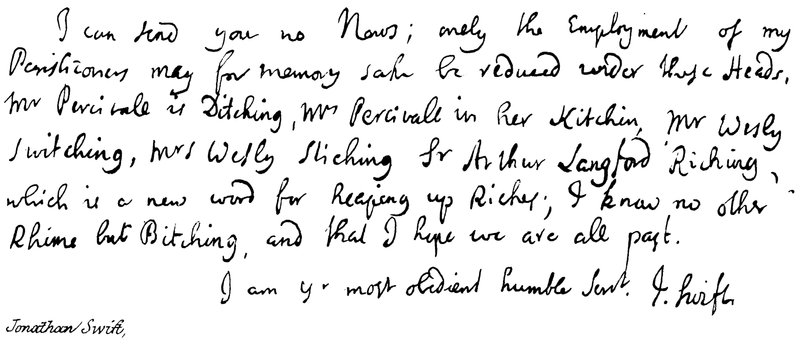 I can send you no News; onely the Employment of my
Parishioners may for memory sake be reduced under these Heads,
Mr Percivale is Ditching, Mrs Percivale in her Kitchin, Mr Wesly
Switching, Mrs Wesly Stiching Sr Arthur Langford Riching,
which is a new word for heaping up Riches; I know no other
Rhime but Bitching, and that I hope we are all past.
I am yr most obedient humble Servt. J. Swift
Jonathan Swift,